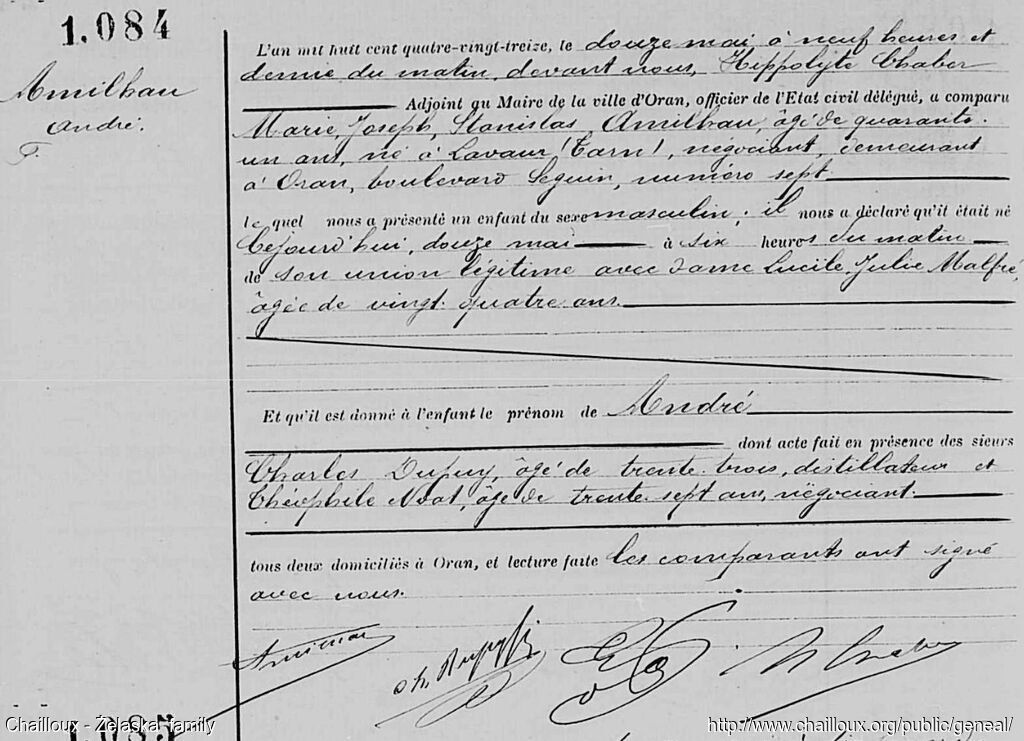 1.084
Amilhau
André.
F.
L'an mil huit cent quatre-vingt-treize, le douze mai à neuf heures et
demie du matin, devant nous, Hippolyte Chaber
Adjoint au Maire de la ville d'Oran, officier de l'Etat civil délégué, a comparu
Marie, Joseph, Stanislas, Amilhau, âgé de quarante-
un ans, né à Lavaur (Tarn), négociant, demeurant
à Oran, boulevard Seguin, numéro sept.
le quel nous a présenté un enfant du sexe masculin; il nous a déclaré qu'il était né
Cejourd'hui, douze mai à six heures du matin
de son union légitime avec dame Lucile, Julie Malfré,
âgée de vingt-quatre ans.
Et qu'il est donné à l'enfant le prénom de André
dont acte fait en présence des sieurs
Charles Dupuy, âgé de trente-trois, distillateur et
Théophile, âgé de trente-sept ans, négociant.
tous deux domiciliés à Oran, et lecture faite les comparants ont signé
avec nous.
Ch. Dupuy
H Chaber
1.085
Chailloux - Zelaska family
http://www.chailloux.org/public/geneal/